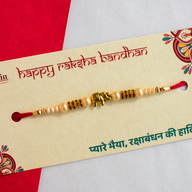 Happy Raksha Bandhan
प्यारे भैया, रक्षाबंधन की हार्दि